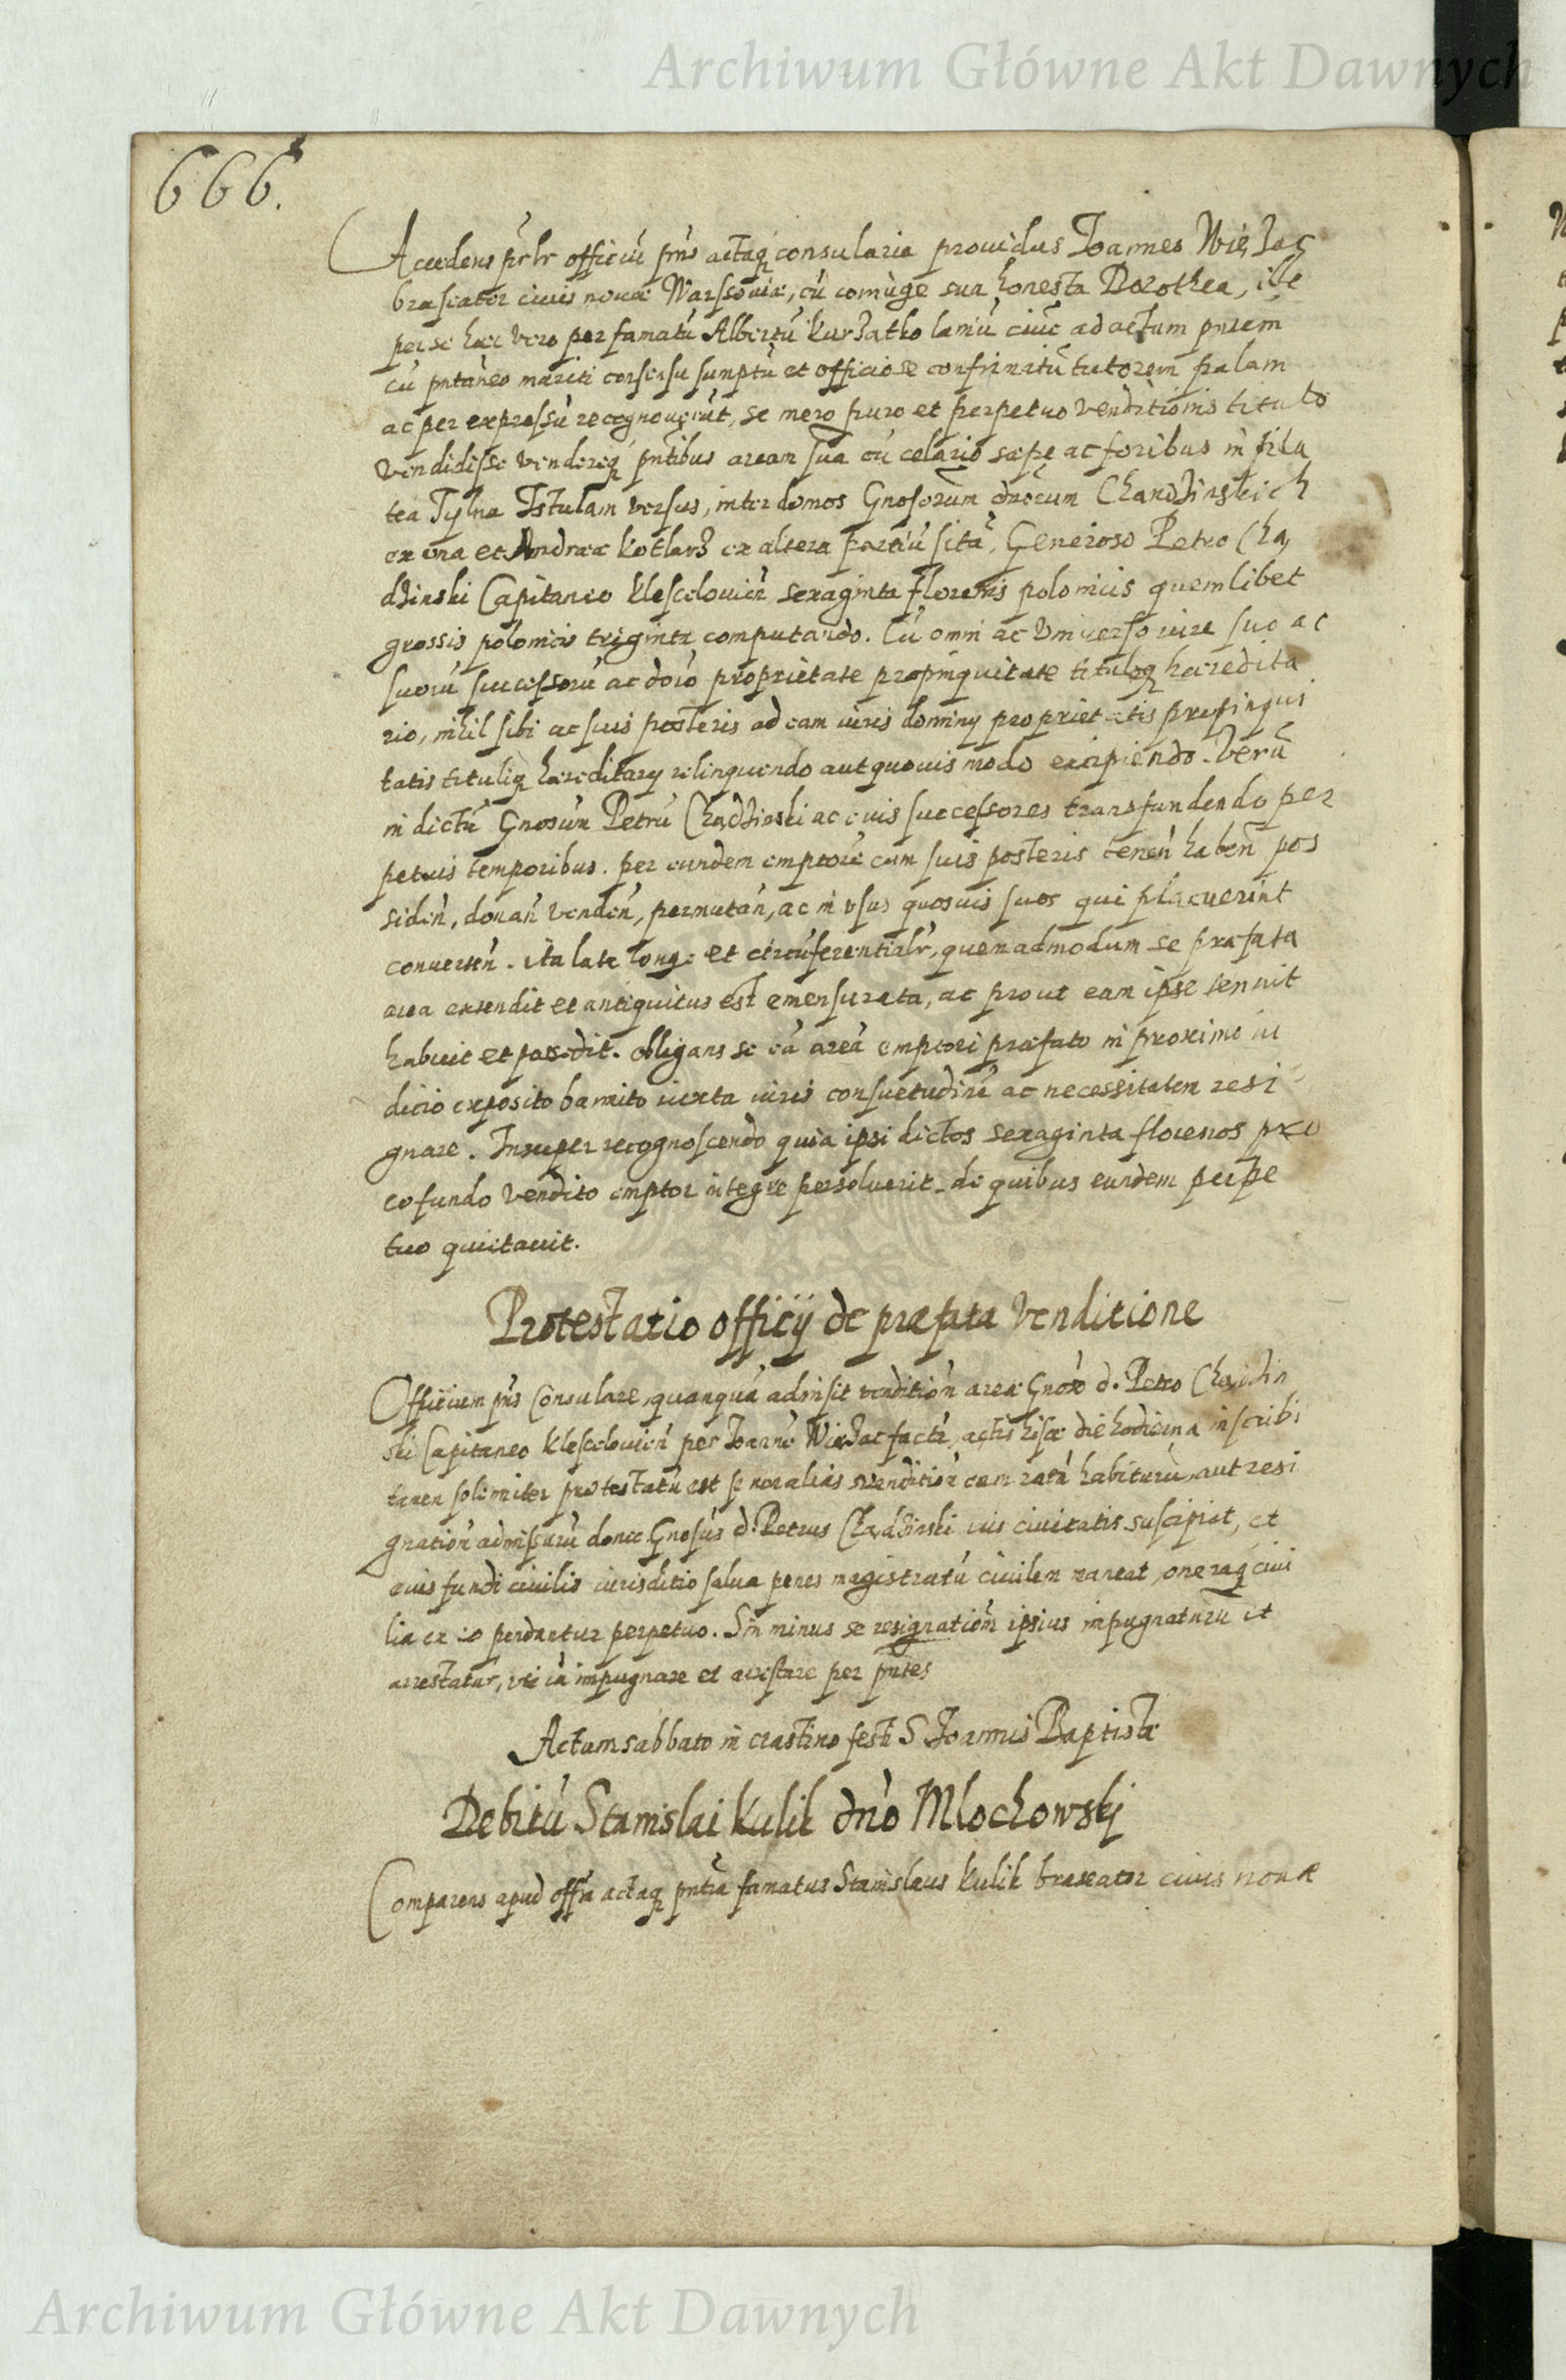 Archiwum Główne Akt Dawnych
666.
Accedens officiū pn̄s actaq̨ consularia prouidus Joannes
braseator ciuis nouæ Warssouiæ, cū coniuge sua honesta Dorothea, ille
per se hæc vero per famatū Albertū Kurzatko laniū ciuē ad actum pn̄tem
cū pn̄taneo mariti consensu sumptū et officiose confirmatū tutorem palam
ac per expressū recognouerūt, se mero puro et perpetuo venditionis titulo
vendidisse vendereq̨ pn̄tibus aream suā cū celario sæpe ac foribus in pla
tea Tylna Istulam versus, inter domos Gnosorum Chandzinskich
ex vna et Andreæ Kotlarz ex altera partiū sitā, Generoso Petro Chą
dzinski Capitaneo Klescelouień sexaginta florenis polonicis quemlibet
grossis polonicis triginta computando. Cū omni ac vniuerso iure suo ac
suorū successorū ac proprietate propinquitate tituloq̨ hæredita
rio, nihil sibi ac suis posteris ad eam iuris dominy proprietatis propinqui
tatis tituliq̨ hæreditary relinquendo aut quouis modo excipiendo. Verū
in dictū Gnosum Petrū Chądzinski ac eius successores transfundendo per
petuis temporibus. per eundem emptorē cum suis posteris teneń habeń pos
sideń, donań vendeń, permutań, ac in vsus quosuis suos qui placuerint
conuerteń. ita late longe et circūferentialr̄, quemadmodum se præfata
area extendit et antiquitus est emensurata, ac prout eam ipse tenuit
habuit et possedit. obligans se eā areā emptori præfato in proximo iu
dicio exposito bannito iuxta iuris consuetudinē ac necessitatem resi
gnare. Insuper recognoscendo quia ipsi dictos sexaginta florenos pro
eo fundo vendito emptor integre persoluerit. de quibus eundem perpe
tuo quietauit.
Protestatio officij de præfata Venditione
Officium pn̄s Consulare, quanquā admisit venditioń areæ Gnoso d. Petro Chądzin
ski Capitaneo Klescelouień per Joannē factā, actis hisce die hodierna inscribi
tamen solenniter protestatū est se non alias venditioń eam ratā habiturū, aut resi
gnatioń admissurū donec Gnosus d. Petrus Chądzinski ius ciuitatis suscipiat, et
eius fundi ciuilis iurisditio salua penes magistratū ciuilem maneat, oneraq̨ ciui
lia ex eo pendantur perpetuo. Sin minus se resignatioń ipsius impugnaturū et
arrestatur, vti iā impugnare et arestare per pn̄tes
Actum sabbato in crastino festi S Joannis Baptistæ
Debitū Stanislai Kulik dn̄o Mlochowskj
Comparens apud offā actaq̨ pn̄tia famatus Stanislaus Kulik braxeator ciuis nouæ
Archiwum Główne Akt Dawnych